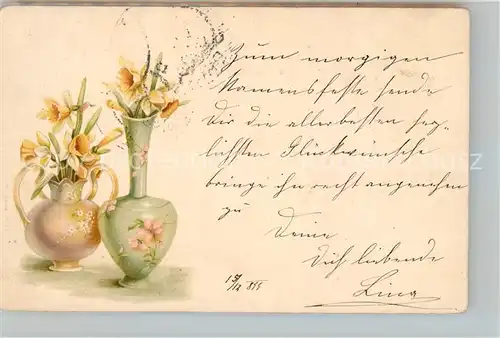 Zum morgigen
Namensfeste sende
Dir die allerbesten herz-
lichsten Glückwünsche
bringe ihn recht angenehm
zu
Deine
Dich liebende
Lina